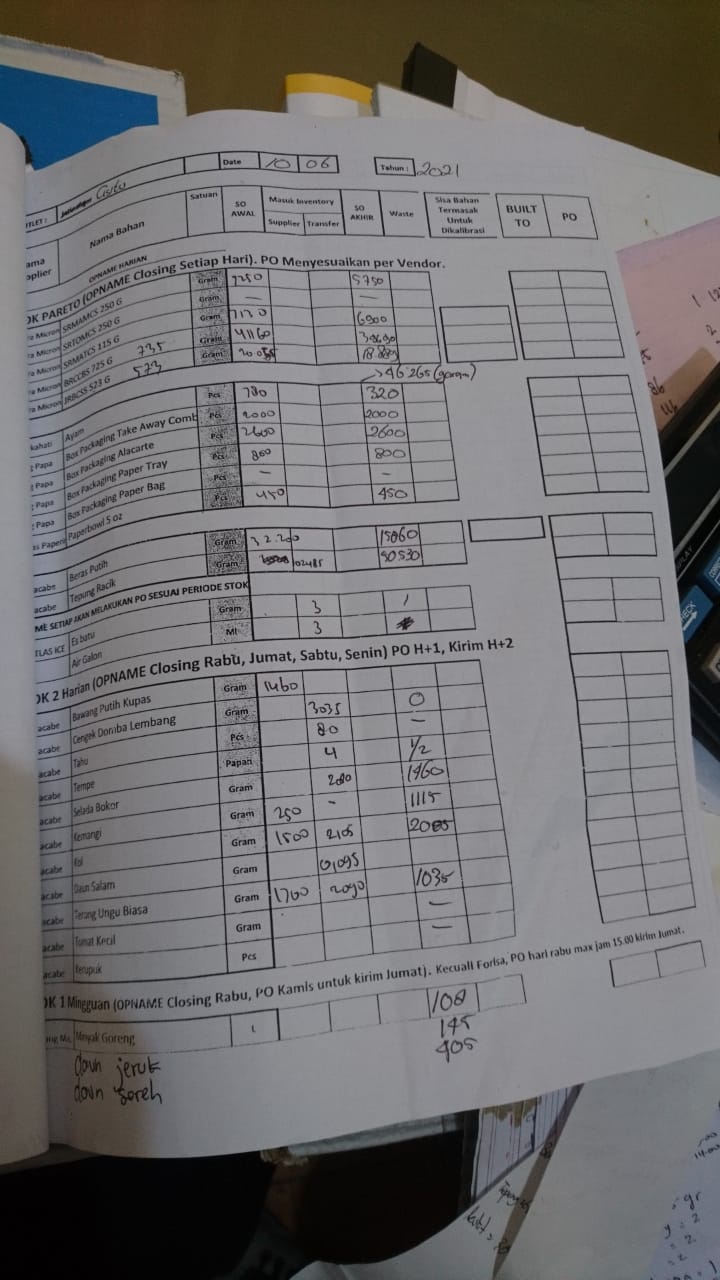 Date 10 06 Tahun : 2021
TLET :
Nama Bahan Satuan SO AWAL Masuk Inventory Supplier Transfer SO AKHIR Waste Sisa Bahan Termasak Untuk Dikalibrasi BUILT TO PO
ama
pplier
OPNAME HARIAN
OK PARETO (OPNAME Closing Setiap Hari). PO Menyesuaikan per Vendor.
a Micron SRMAMCS 250 G Gram 5750
a Micron SRTOMCS 250 G Gram — —
a Micron SRMATCS 115 G Gram 7120 6900
a Micron BRCCBS 725 G 735 Gram 41160
a Micron JRBCSS 523 G 573 Gram
→ 46265 (garam)
kahati Ayam Pcs 780 320
t Papa Box Packaging Take Away Comb Pcs 2000 2000
t Papa Box Packaging Alacarte Pcs 2600 2600
t Papa Box Packaging Paper Tray Pcs 800 800
t Papa Box Packaging Paper Bag Pcs — –
Paperbowl 5 oz Pcs 450 450
acabe Beras Putih Gram 32.200 15060
acabe Tepung Racik Gram 102485 90530
ME SETIAP AKAN MELAKUKAN PO SESUAI PERIODE STOK
ELAS ICE Es batu Gram 3 1
Air Galon Ml 3
OK 2 Harian (OPNAME Closing Rabu, Jumat, Sabtu, Senin) PO H+1, Kirim H+2
acabe Bawang Putih Kupas Gram 1460
acabe Cengek Domba Lembang Gram 3035 0
acabe Tahu Pcs 80 —
acabe Tempe Papan 4 1/2
acabe Selada Bokor Gram 2080 1460
acabe Kemangi Gram 250 - 1115
acabe Kol Gram 1500 2105 2085
acabe Daun Salam Gram 0,095
acabe Terong Ungu Biasa Gram 1700 2090 1035
acabe Tomat Kecil Gram —
acabe Kerupuk Pcs —
OK 1 Mingguan (OPNAME Closing Rabu, PO Kamis untuk kirim Jumat). Kecuali Forisa, PO hari rabu max jam 15.00 kirim Jumat.
Minyak Goreng L 108
daun jeruk 145
daun sereh 405